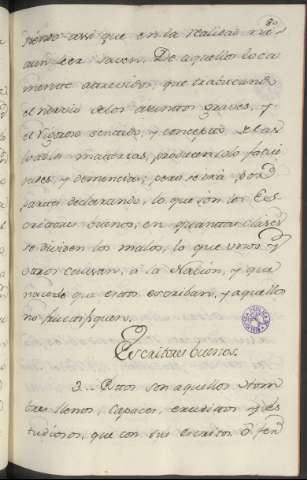 80
siendo assi que en la realidad ni
aun leer saven. De aquellos loca
mente atrevidos, que trabucando
el nervio de los asuntos graves, y
el vigoroso sentido, y concepto de las
materias, producen solo
y demencia; pero se irá por
partes declarando, lo que son los Es
critores buenos, en quantas clases
se dividen los malos, lo que unos, y
otros causan, á la Nación, y que
nace de que estos escriban, y aquellos
no
Escritores buenos.
3... Estos son aquellos Hom
bres llenos, capaces, eruditos y es
tudiosos, que con sus escritos